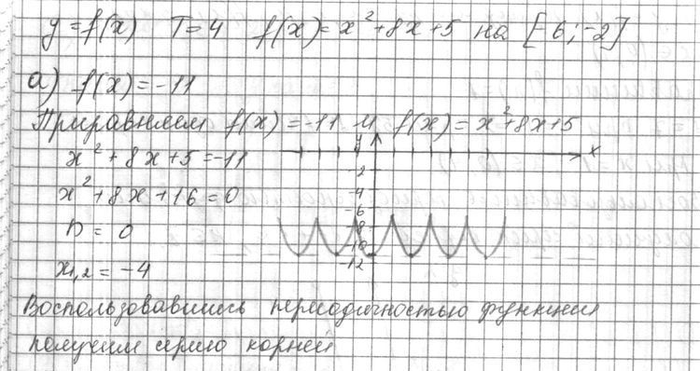 y=f(x) T=4 f(x)=x²+8x+5 на [-6;-2]
а) f(x)=-11
Приравняем f(x)=-11 и f(x)=x²+8x+5
x²+8x+5=-11
x²+8x+16=0
D=0
x₁,₂=-4
y
x
-2
-4
-6
-8
-10
-12
Воспользовавшись периодичностью функции
получим серию корней